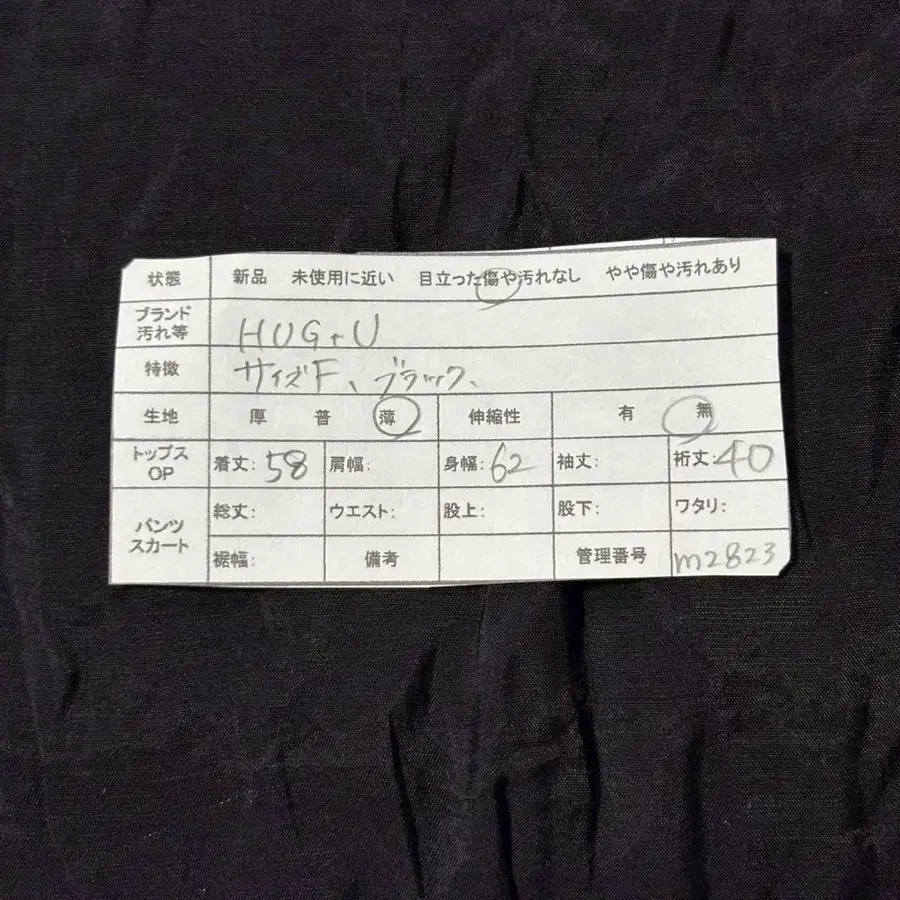 状態 新品 未使用に近い 目立った傷や汚れなし やや傷や汚れあり
ブランド
汚れ等
HUG+U
特徴 サイズF、ブラック、
生地 厚 普 薄 伸縮性 有 無
トップス
OP
着丈:58 肩幅: 身幅:62 袖丈: 裄丈:40
パンツ
スカート
総丈: ウエスト: 股上: 股下: ワタリ:
裾幅: 備考 管理番号 m2823